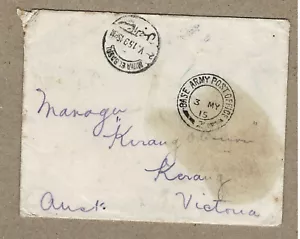 MINIA EL QAMH
BASE ARMY POST OFFICE
3 MY
15
Manager
"Kerang
Kerang
Aust. Victoria